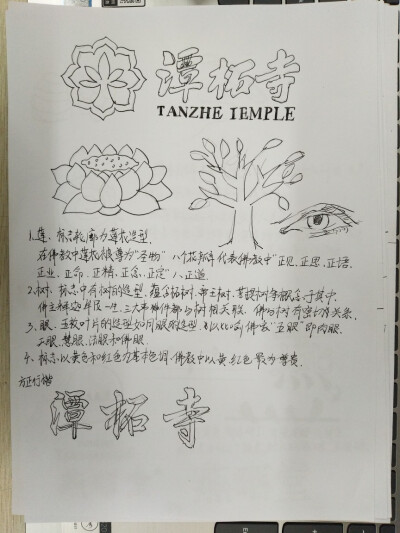 潭柘寺
TANZHE TEMPLE
1.莲、标志轮廓为莲花造型.
在佛教中莲花被尊为“圣物” 八个花瓣年代表佛教中“正见、正思、正语、
正业、正命、正精、正念、正定”八正道.
2.树、标志中有树的造型,蕴含柘树、帝王树、菩提树等概念于其中.
佛主释迦牟尼一生.三大事件都与树相关联.佛与树有密切关系.
3、眼、五枚叶片的造型如同眼的造型,以比喻佛家“五眼”即肉眼.
天眼.慧眼.法眼和佛眼.
4、标志以黄色和红色为基本色调.佛教中以黄.红色最为尊贵.
方正行楷
潭柘寺